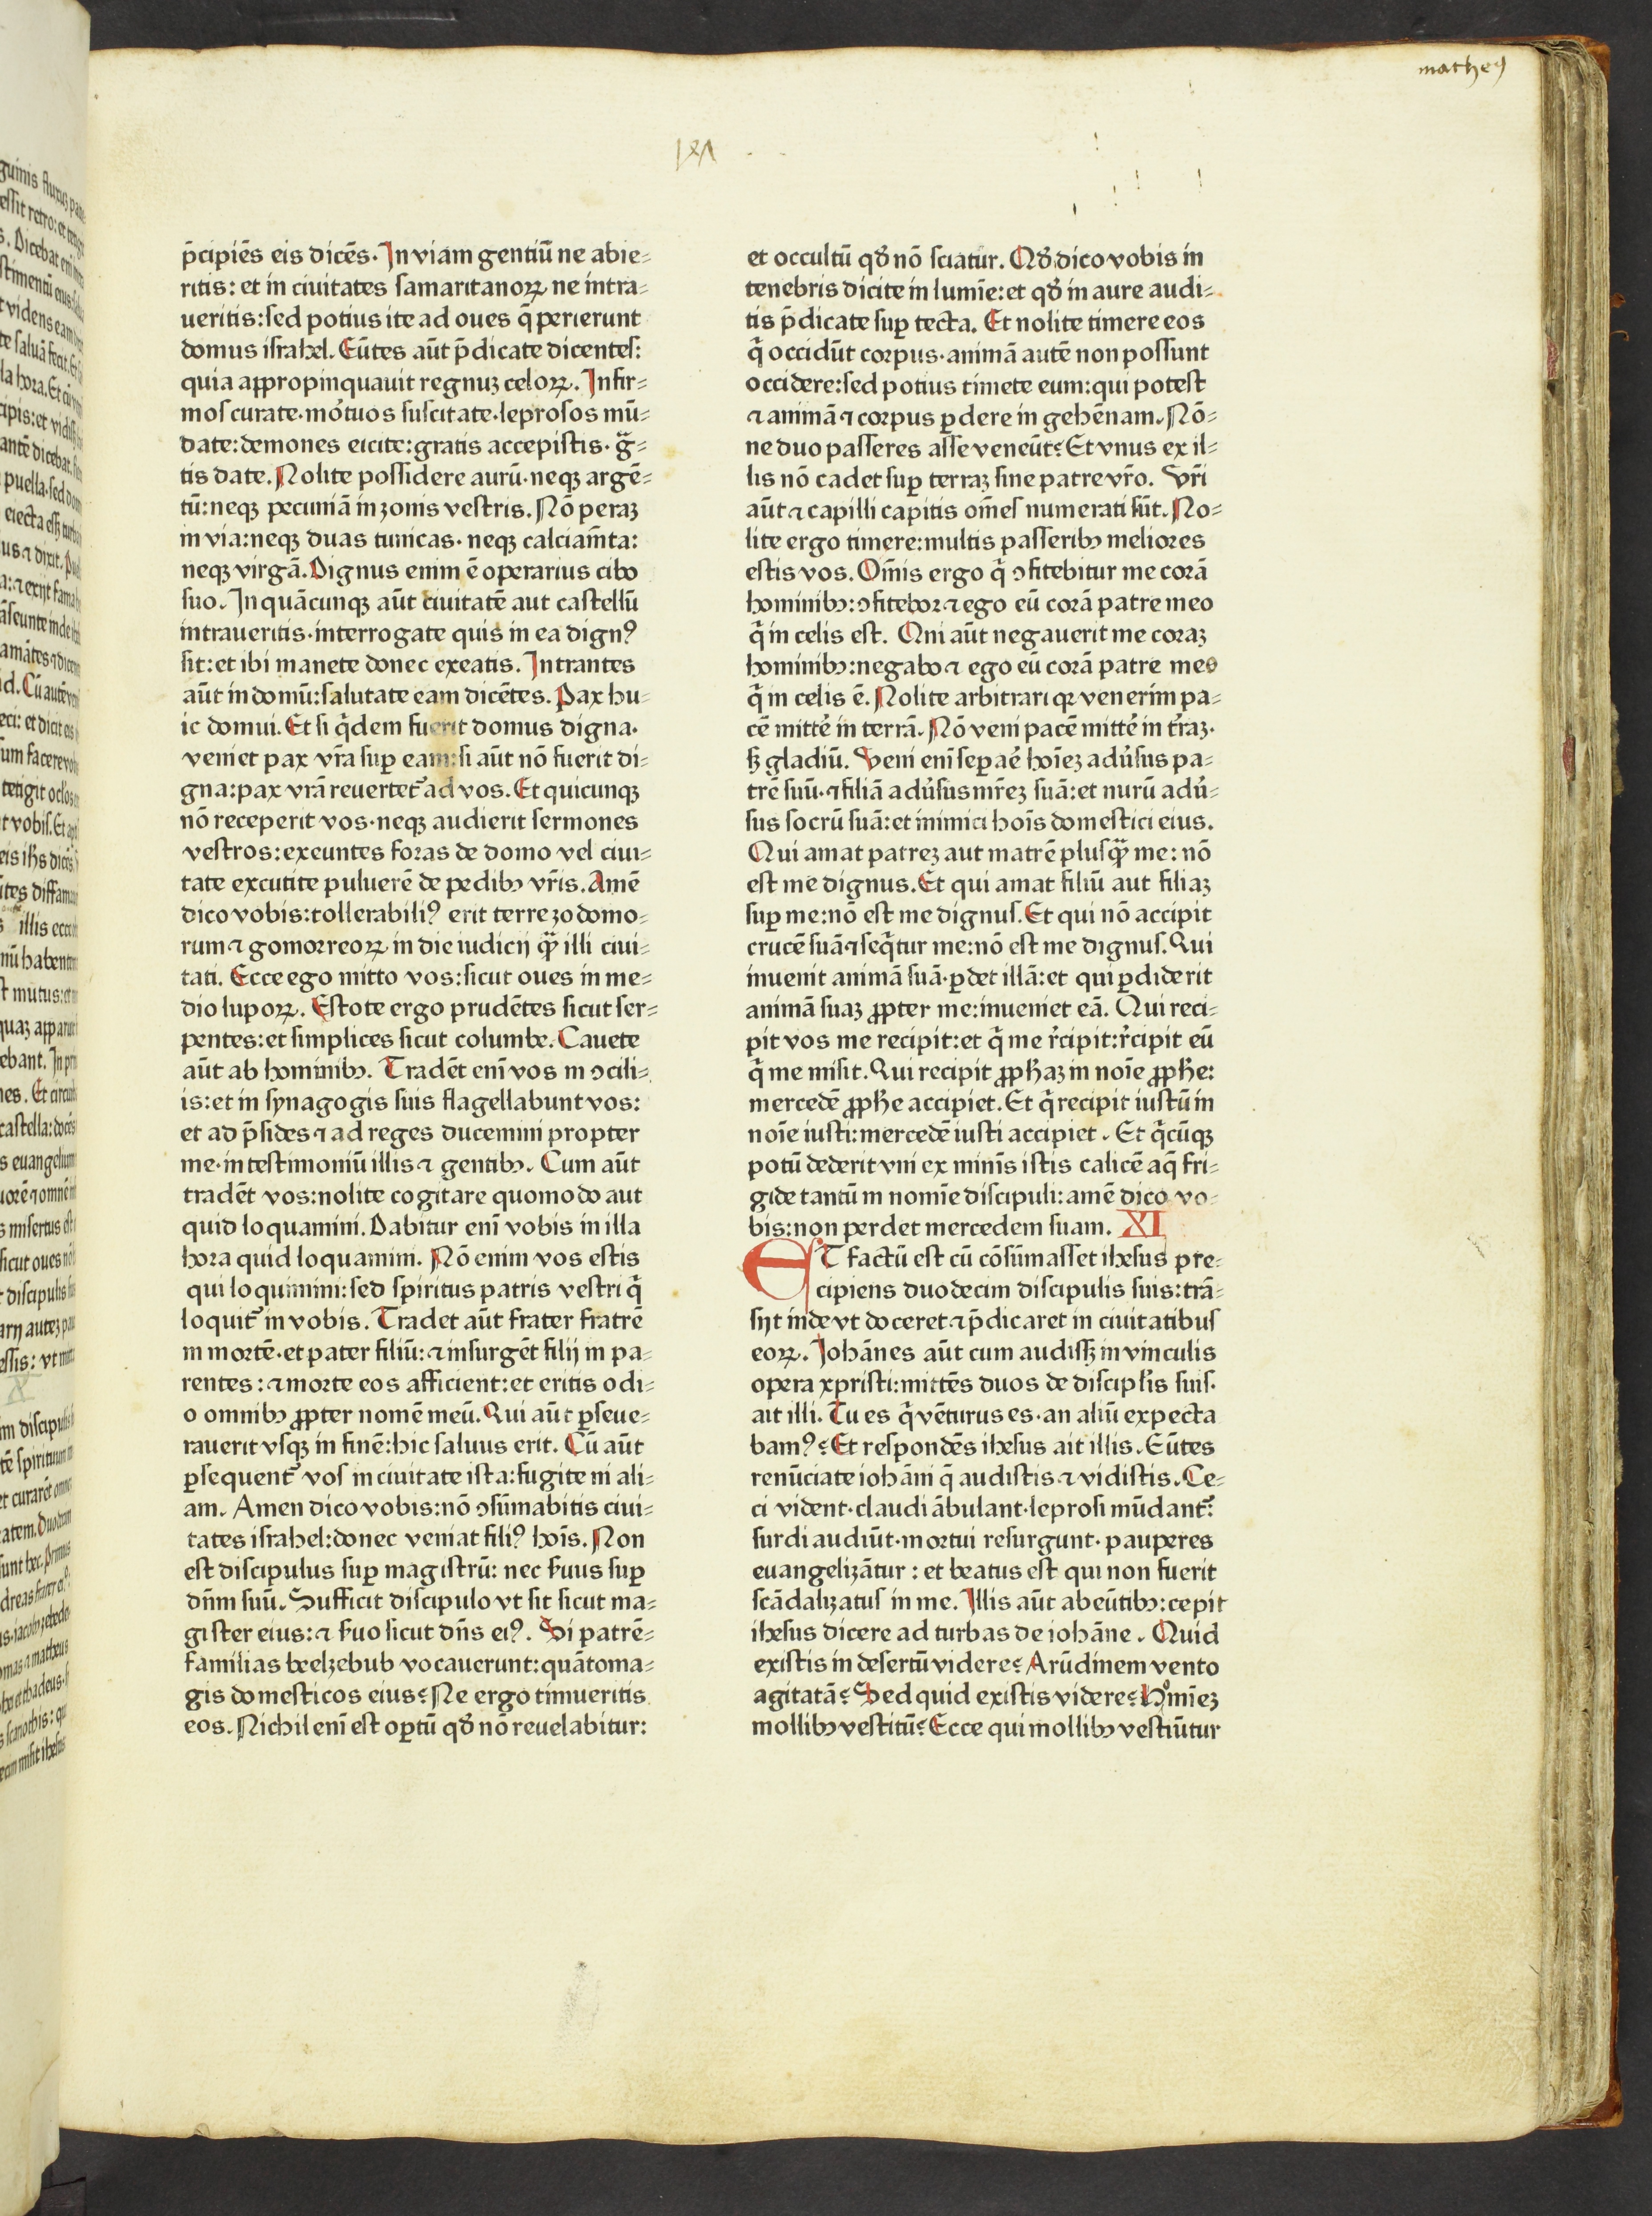 matheꝰ
p̄cipiēs eis dicēs. In viam gentiū ne abie⸗
ritis: et in ciuitates samaritanoꝝ ne intra⸗
ueritis: sed potius ite ad oues q̄ perierunt
domus israhel. Eūtes aūt p̄dicate dicentes:
quia appropinquauit regnuꝫ celoꝝ. Infir⸗
mos curate. mo᷑tuos suscitate. leprosos mū⸗
date: demones eicite: gratis accepistis. gᷓ⸗
tis date. Nolite possidere aurū. neqꝫ argē⸗
tū: neqꝫ pecuniā in zonis vestris. Nō peraꝫ
in via: neqꝫ duas tunicas. neqꝫ calciam̄ta:
neqꝫ virgā. Dignus enim ē operarius cibo
suo. In quācunqꝫ aūt ciuitatē aut castellū
intraueritis. interrogate quis in ea dignꝰ
sit: et ibi manete donec exeatis. Intrantes
aūt in domū: salutate eam dicētes. Pax hu⸗
ic domui. Et si q̄dem fuerit domus digna.
veniet pax vr̄a suꝑ eam: si aūt nō fuerit di⸗
gna: pax vrā reuertet᷑ ad vos. Et quicunqꝫ
nō receperit vos. neqꝫ audierit sermones
vestros: exeuntes foras de domo vel ciui⸗
tate excutite puluerē de pedibꝫ vr̄is. Amē
dico vobis: tollerabiliꝰ erit terre zodomo⸗
rum ⁊ gomorreoꝝ in die iudicij qᷓꝫ illi ciui⸗
tati. Ecce ego mitto vos: sicut oues in me⸗
dio lupoꝝ. Estote ergo prudētes sicut ser⸗
pentes: et simplices sicut columbe. Cauete
aūt ab hominibꝫ. Tradēt enī vos in ↄcili⸗
is: et in synagogis suis flagellabunt vos:
et ad p̄sides ⁊ ad reges ducemini propter
me. in testimoniū illis ⁊ gentibꝫ. Cum aūt
tradēt vos: nolite cogitare quomodo aut
quid loquamini. Dabitur enī vobis in illa
hora quid loquamini. Nō enim vos estis
qui loquimini: sed spiritus patris vestri q̄
loquit᷑ in vobis. Tradet aūt frater fratrē
in mortē. et pater filiū: ⁊ insurgēt filij in pa⸗
rentes: ⁊ morte eos afficient: et eritis odi⸗
o omnibꝫ ꝓpter nomē meū. Qui aūt ꝑseue⸗
rauerit vsqꝫ in finē: hic saluus erit. Cū aūt
ꝑsequent᷑ vos in ciuitate ista: fugite ni ali⸗
am. Amen dico vobis: nō ↄsūmabitis ciui⸗
tates israhel: donec veniat filiꝰ hoīs. Non
est discipulus suꝑ magistrū: nec ẜuus suꝑ
dn̄m suū. Sufficit discipulo vt sit sicut ma⸗
gister eius: ⁊ ẜuo sicut dn̄s eiꝰ. Si patrē⸗
familias beelzebub vocauerunt: quātoma⸗
gis domesticos eius? Ne ergo timueritis
eos. Nichil enī est oꝑtū qđ nō reuelabitur:
et occultū qđ nō sciatur. Qđ dico vobis in
tenebris dicite in lumīe: et qđ in aure audi⸗
tis p̄dicate suꝑ tecta. Et nolite timere eos
q̄ occidūt corpus. animā autē non possunt
occidere: sed potius timete eum: qui potest
⁊ animā ⁊ corpus ꝑdere in gehēnam. Nō⸗
ne duo passeres asse veneūt? Et vnus ex il⸗
lis nō cadet suꝑ terraꝫ sine patre vr̄o. Vr̄i
aūt ⁊ capilli capitis om̄es numerati sūt. No⸗
lite ergo timere: multis passeribꝫ meliores
estis vos. Om̄is ergo q̄ ↄfitebitur me corā
hominibꝫ: ↄfitebor ⁊ ego eū corā patre meo
q̄ in celis est. Qui aūt negauerit me coraꝫ
hominibꝫ: negabo ⁊ ego eū corā patre meo
q̄ in celis ē. Nolite arbitrari qꝛ venerim pa⸗
cē mitte᷑ in terrā. Nō veni pacē mitte᷑ in t᷑raꝫ.
sꝫ gladiū. Veni enī seꝑae᷑ hoīeꝫ adu᷑sus pa⸗
trē suū. ⁊ filiā adu᷑sus mr̄eꝫ suā: et nurū adu᷑⸗
sus socrū suā: et inimici hoīs domestici eius.
Qui amat patreꝫ aut matrē plusqᷓꝫ me: nō
est me dignus. Et qui amat filiū aut filiaꝫ
suꝑ me: nō est me dignus. Et qui nō accipit
crucē suā ⁊ seq̄tur me: nō est me dignus. Qui
inuenit animā suā. ꝑdet illā: et qui ꝑdiderit
animā suaꝫ ꝓpter me: inueniet eā. Qui reci⸗
pit vos me recipit: et q̄ me r᷑cipit: r᷑cipit eū
q̄ me misit. Qui recipit ꝓpħaꝫ in noīe ꝓpħe:
mercedē ꝓpħe accipiet. Et q̄ recipit iustū in
noīe iusti: mercedē iusti accipiet. Et q̄cūqꝫ
potū dederit vni ex minīs istis calicē aq̄ fri⸗
gide tantū in nomīe discipuli: amē dico vo⸗
bis: non perdet mercedem suam. XI
ET factū est cū cōsūmasset ihesus pre⸗
cipiens duodecim discipulis suis: trā⸗
sijt inde vt doceret ⁊ p̄dicaret in ciuitatibus
eoꝝ. Johānes aūt cum audissꝫ in vinculis
opera xpristi: mittēs duos de disciplīs suis.
ait illi. Tu es q̄ vēturus es. an aliū expecta
bamꝰ? Et respondēs ihesus ait illis. Eūtes
renūciate iohāni q̄ audistis ⁊ vidistis. Ce⸗
ci vident. claudi ābulant. leprosi mūdant᷑:
surdi audiūt. mortui resurgunt. pauperes
euangelizātur: et beatus est qui non fuerit
scādalizatus in me. Illis aūt abeūtibꝫ: cepit
ihesus dicere ad turbas de iohāne. Quid
existis in desertū videre? Arūdinem vento
agitatā? Sed quid existis videre? Hoīmīeꝫ
mollibꝫ vestitū? Ecce qui mollibꝫ vestiūtur